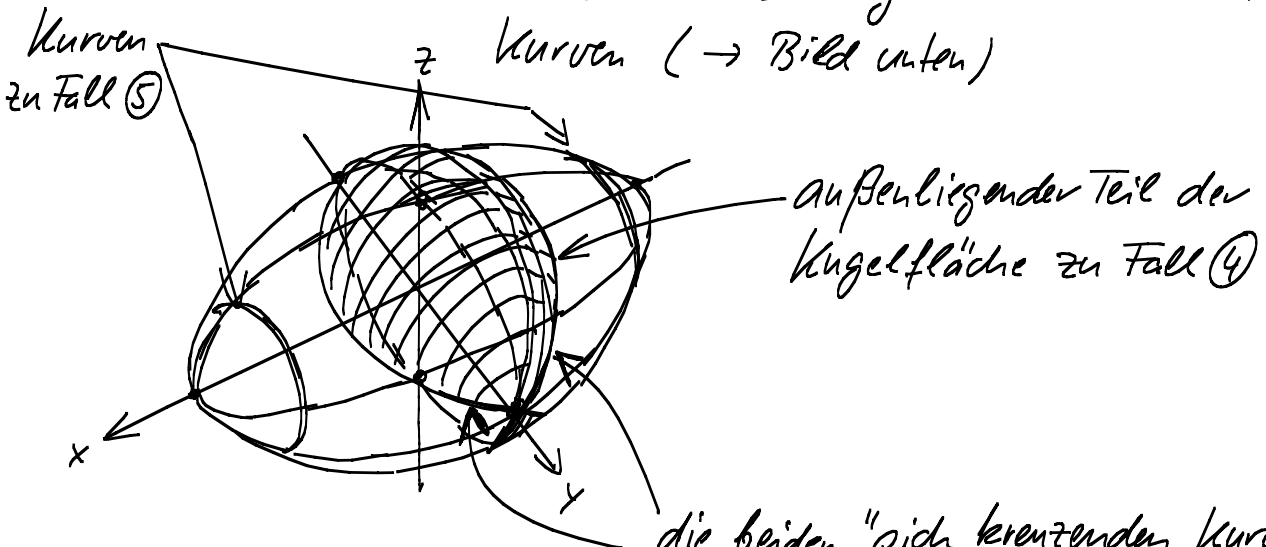 Kurven
zu Fall ⑤
Kurven (→ Bild unten)
z
außenliegender Teil der
Kugelfläche zu Fall ④
x
y
die beiden "sich kreuzenden